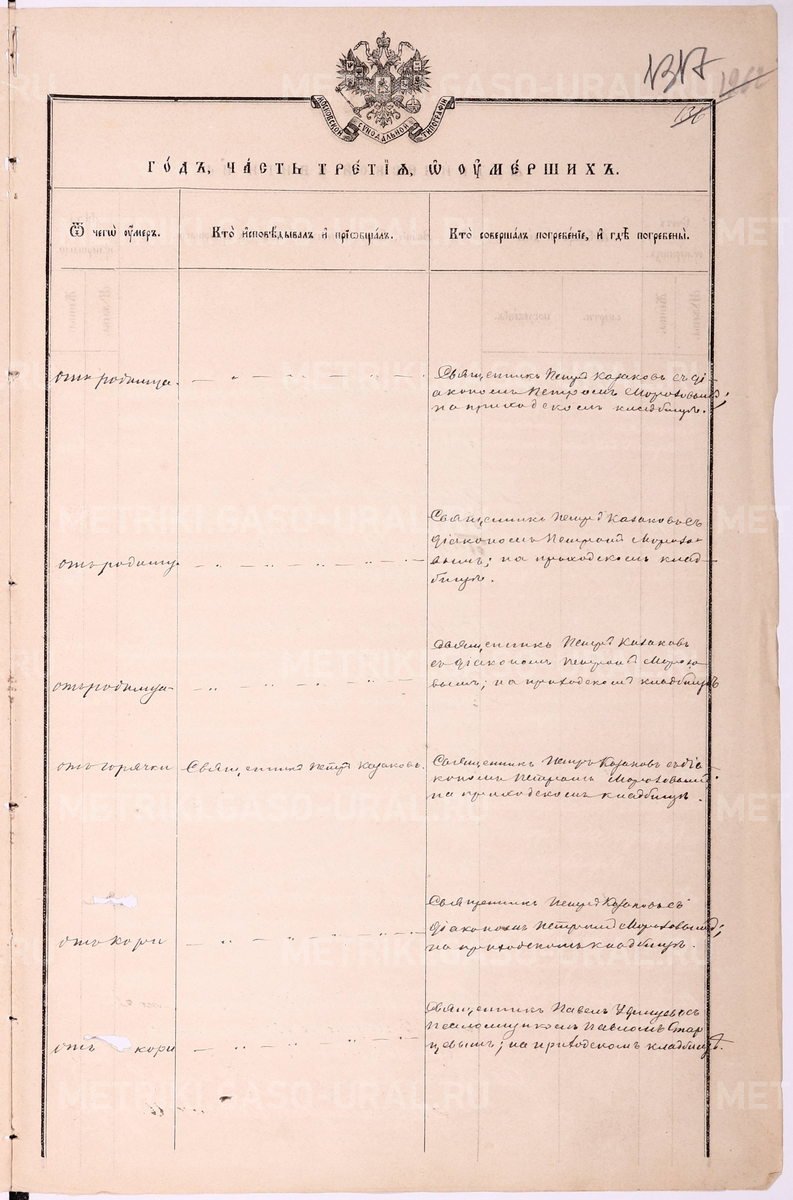 1317
МОСКОВСКОЙ СѴНОДАЛЬНОЙ ТИПОГРАФІИ
ГО́ДЪ, ЧА́СТЬ ТРЕ́ТІѦ, Ѡ҆ ОУ҆МЕ́РШИХЪ.
Ѿ чегѡ̀ оу҆́меръ.
Кто̀ и҆сповѣ́дывалъ и҆ прїѡбща́лъ.
Кто̀ соверша́лъ погребе́нїе, и҆ гдѣ̀ погребены̀.
отъ родимца.
Священникъ Петръ Казаковъ съ ді-
акономъ Петромъ Морозовымъ;
на приходскомъ кладбищѣ.
отъ родимц
Священникъ Петръ Казаковъ съ
діакономъ Петромъ Морозо-
вымъ; на приходскомъ клад-
бищѣ.
отъ родимца
Священникъ Петръ Казаковъ
съ діакономъ Петромъ Морозо-
вымъ; на приходскомъ кладбищѣ
отъ горячки
Священникъ Петръ Казаковъ.
Священникъ Петръ Казаковъ съ діа-
кономъ Петромъ Морозовымъ
на приходскомъ кладбищѣ.
отъ кори
Священникъ Петръ Казаковъ съ
діакономъ Петромъ Морозовымъ;
на приходскомъ кладбищѣ.
отъ кори
Священникъ Павелъ съ
псаломщикомъ Павломъ Стар
цевымъ; на приходскомъ кладбищѣ.
METRIKI.GASO-URAL.RU